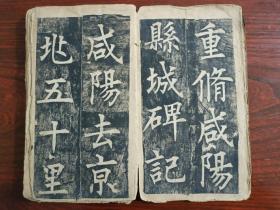 重脩咸陽
縣城碑記
咸陽去京
兆五十里